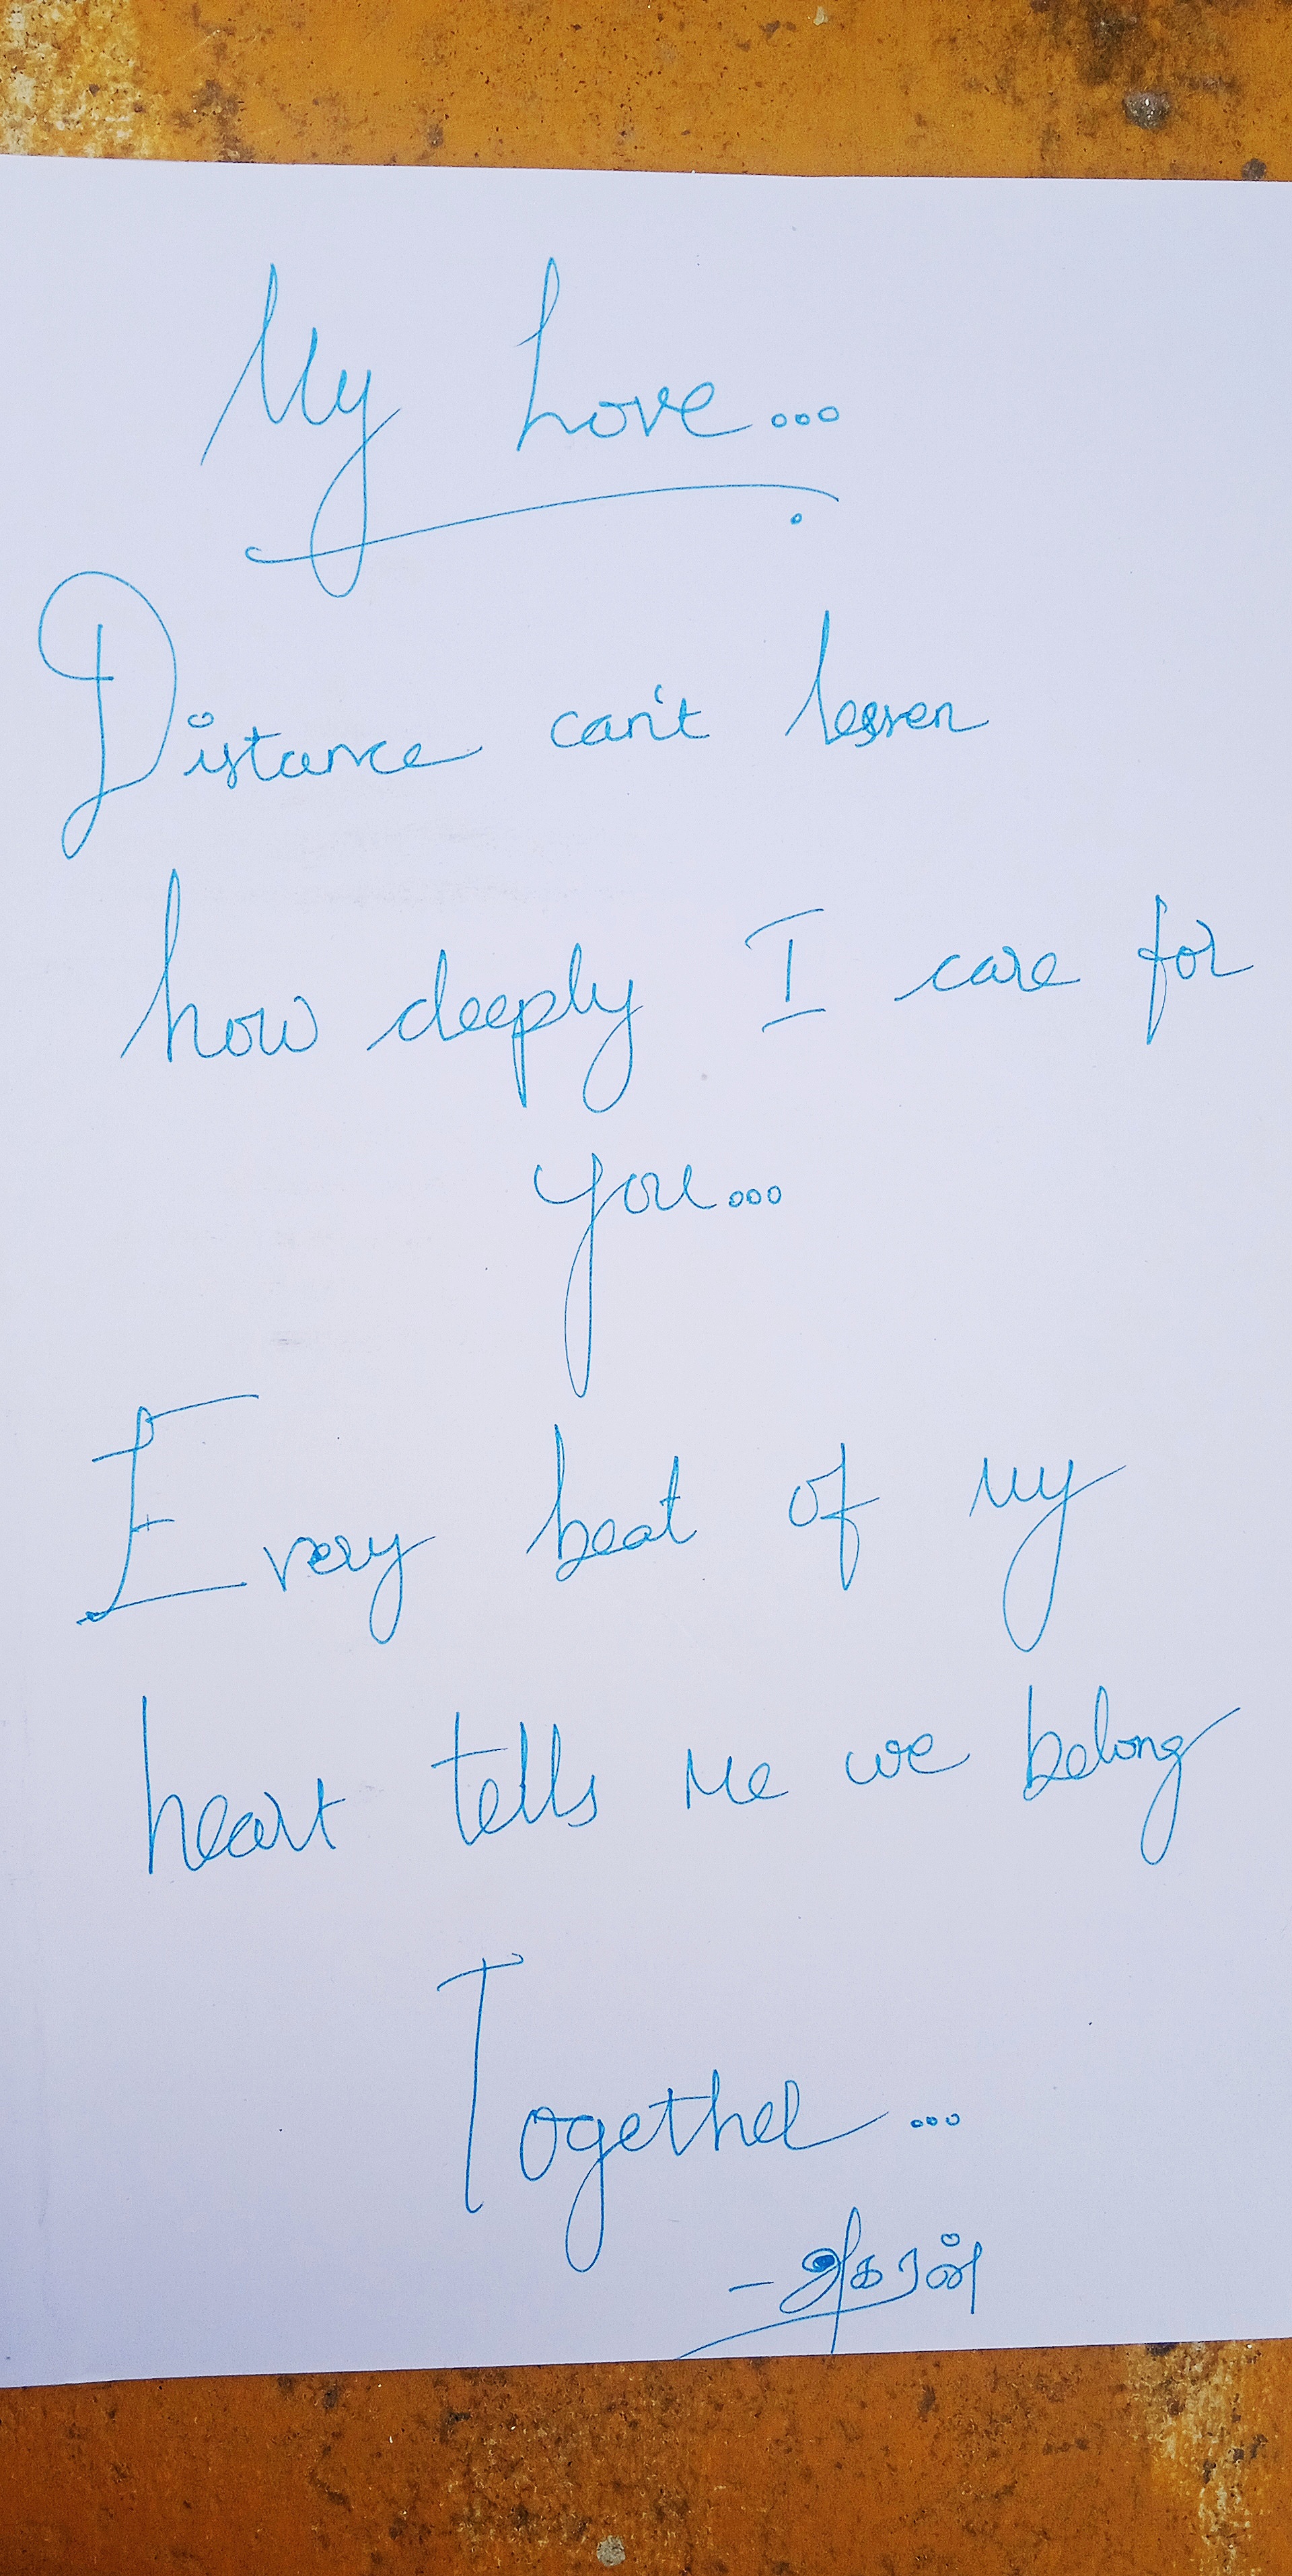 My Love...
Distance can't lessen
how deeply I care for
you...
Every beat of my
heart tells me we belong
Together...
- அகரன்